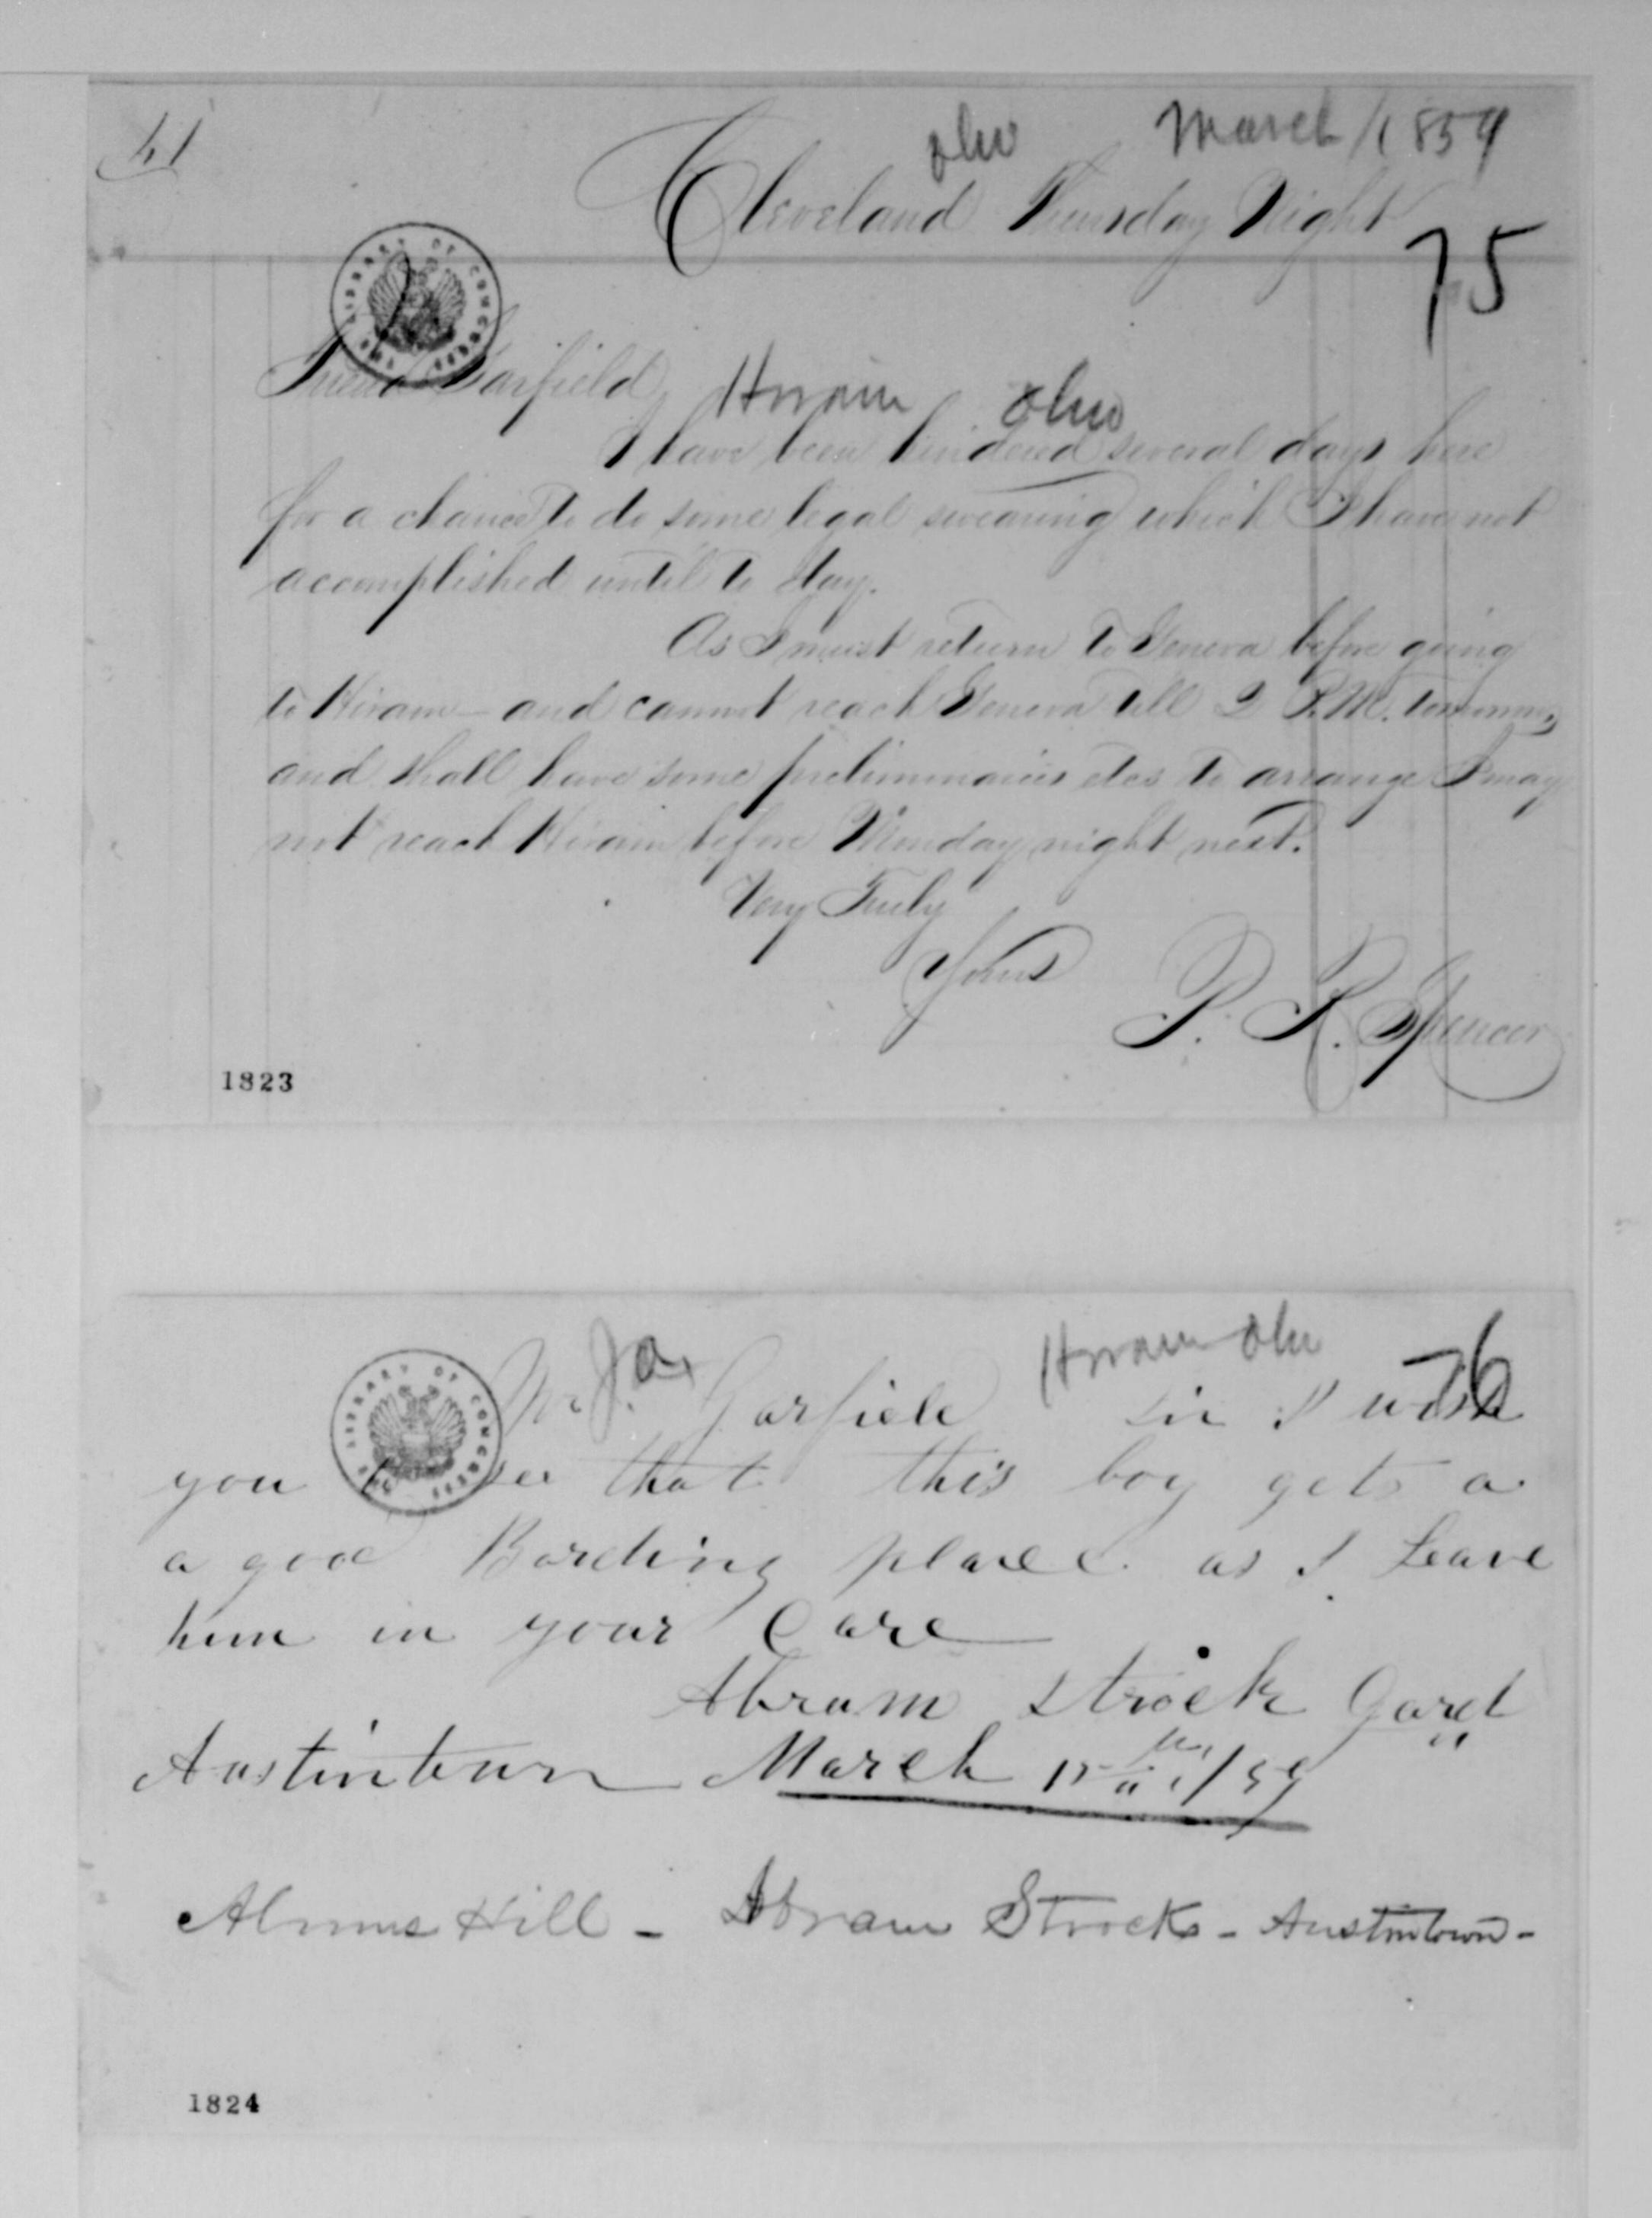 Ohio March /1859
Cleveland Thursday Night
75
THE LIBRARY OF CONGRESS
Friend Garfield, Hiram Ohio
I have been hindered several days here
for a chance to do some legal swearing which I have not
accomplished until to day.
As I must return to Geneva before going
to Hiram – and cannot reach Geneva till 2 P.M. tomorrow,
and shall have some preliminaries etcs to arrange I may
not reach Hiram before Monday night next.
Very Truly
Yours
P. R. Spencer
1823
Hiram Ohio
76
THE LIBRARY OF CONGRESS
Mr J. A. Garfield sir I wish
you to see that this boy gets a
a good Bording place as I Leave
him in your Care
Abram Strock Gard
Austintown March /59
Hill – Abram Strock – Austintown –
1824